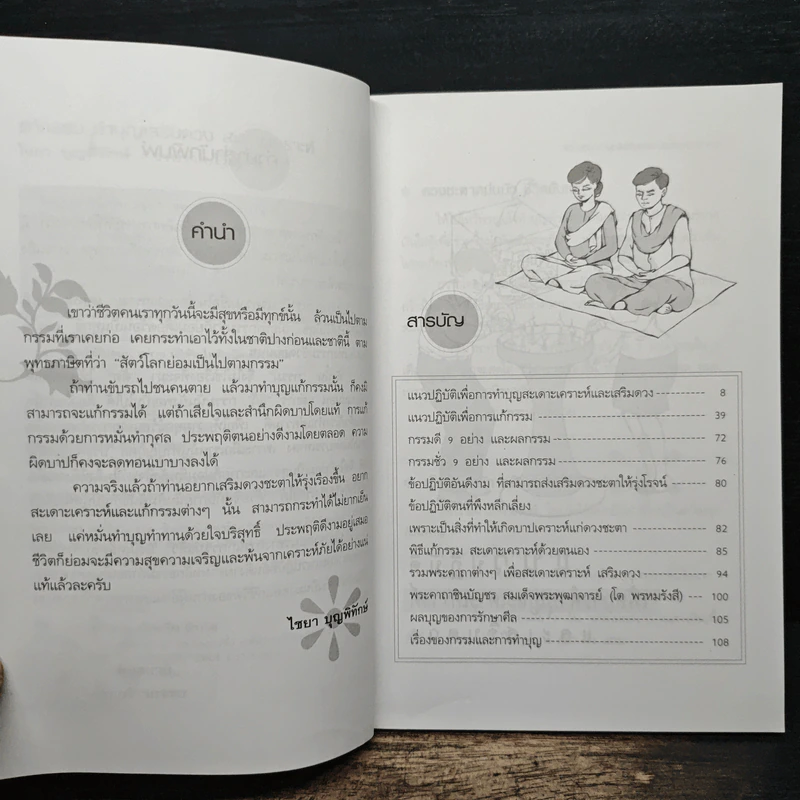 คำนำ
เขาว่าชีวิตคนเราทุกวันนี้จะมีสุขหรือมีทุกข์นั้น ล้วนเป็นไปตาม
กรรมที่เราเคยก่อ เคยกระทำเอาไว้ทั้งในชาติปางก่อนและชาตินี้ ตาม
พุทธภาษิตที่ว่า "สัตว์โลกย่อมเป็นไปตามกรรม"
ถ้าท่านขับรถไปชนคนตาย แล้วมาทำบุญแก้กรรมนั้น ก็คงมิ
สามารถจะแก้กรรมได้ แต่ถ้าเสียใจและสำนึกผิดบาปโดยแท้ การแก้
กรรมด้วยการหมั่นทำกุศล ประพฤติตนอย่างดีงามโดยตลอด ความ
ผิดบาปก็คงจะลดทอนเบาบางลงได้
ความจริงแล้วถ้าท่านอยากเสริมดวงชะตาให้รุ่งเรืองขึ้น อยาก
สะเดาะเคราะห์และแก้กรรมต่างๆ นั้น สามารถกระทำได้ไม่ยากเย็น
เลย แค่หมั่นทำบุญทำทานด้วยใจบริสุทธิ์ ประพฤติดีงามอยู่เสมอ
ชีวิตก็ย่อมจะมีความสุขความเจริญและพ้นจากเคราะห์ภัยได้อย่างแน่
แท้แล้วละครับ
ไชยา บุญพิทักษ์
สารบัญ
แนวปฏิบัติเพื่อการทำบุญสะเดาะเคราะห์และเสริมดวง 8
แนวปฏิบัติเพื่อการแก้กรรม 39
กรรมดี 9 อย่าง และผลกรรม 72
กรรมชั่ว 9 อย่าง และผลกรรม 76
ข้อปฏิบัติอันดีงาม ที่สามารถส่งเสริมดวงชะตาให้รุ่งโรจน์ 80
ข้อปฏิบัติตนที่พึงหลีกเลี่ยง
เพราะเป็นสิ่งที่ทำให้เกิดบาปเคราะห์แก่ดวงชะตา 82
พิธีแก้กรรม สะเดาะเคราะห์ด้วยตนเอง 85
รวมพระคาถาต่างๆ เพื่อสะเดาะเคราะห์ เสริมดวง 94
พระคาถาชินบัญชร สมเด็จพระพุฒาจารย์ (โต พรหมรังสี) 100
ผลบุญของการรักษาศีล 105
เรื่องของกรรมและการทำบุญ 108